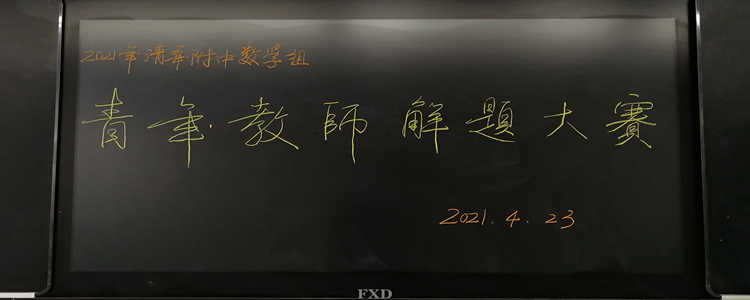 2021年清华附中数学组
青年教師解題大賽
2021.4.23
FXD